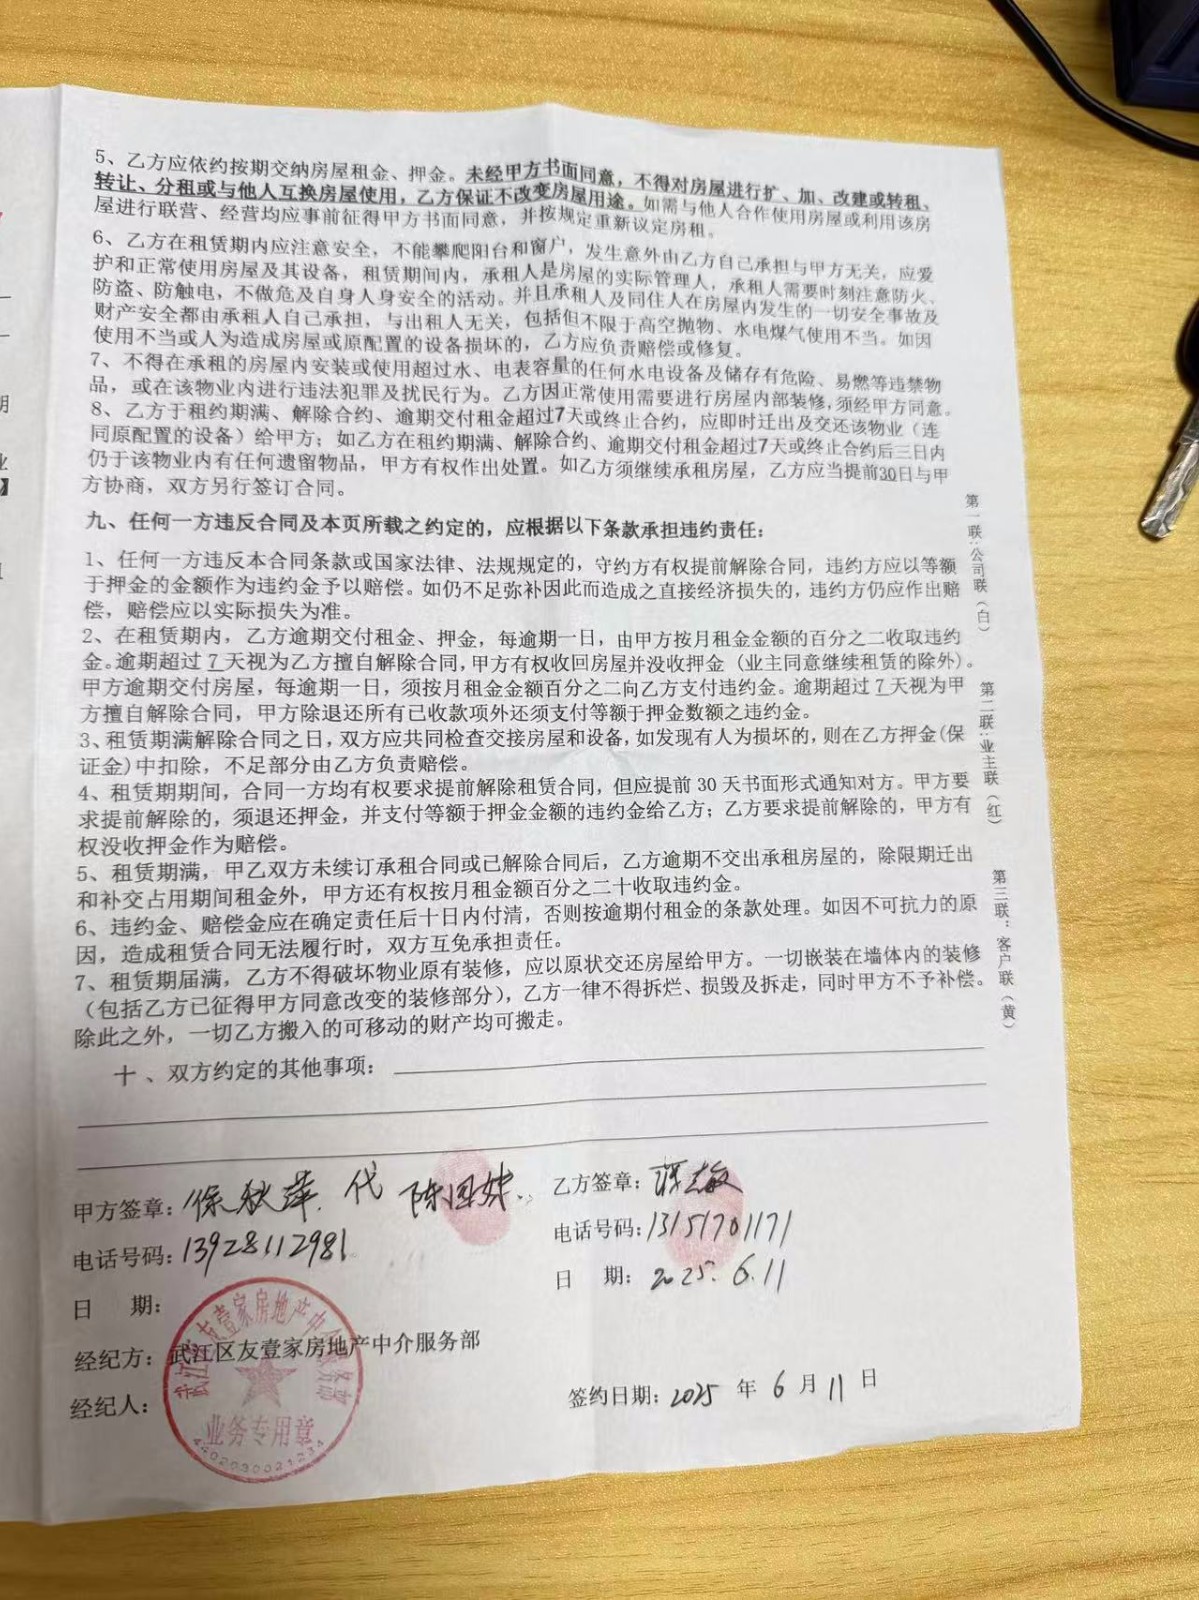 5、乙方应依约按期交纳房屋租金、押金。未经甲方书面同意，不得对房屋进行扩、加、改建或转租、
转让、分租或与他人互换房屋使用，乙方保证不改变房屋用途。如需与他人合作使用房屋或利用该房
屋进行联营、经营均应事前征得甲方书面同意，并按规定重新议定房租。
6、乙方在租赁期内应注意安全，不能攀爬阳台和窗户，发生意外由乙方自己承担与甲方无关，应爱
护和正常使用房屋及其设备，租赁期间内，承租人是房屋的实际管理人，承租人需要时刻注意防火、
防盗、防触电，不做危及自身人身安全的活动。并且承租人及同住人在房屋内发生的一切安全事故及
财产安全都由承租人自己承担，与出租人无关，包括但不限于高空抛物、水电煤气使用不当。如因
使用不当或人为造成房屋或原配置的设备损坏的，乙方应负责赔偿或修复。
7、不得在承租的房屋内安装或使用超过水、电表容量的任何水电设备及储存有危险、易燃等违禁物
品，或在该物业内进行违法犯罪及扰民行为。乙方因正常使用需要进行房屋内部装修，须经甲方同意。
8、乙方于租约期满、解除合约、逾期交付租金超过7天或终止合约，应即时迁出及交还该物业（连
同原配置的设备）给甲方；如乙方在租约期满、解除合约、逾期交付租金超过7天或终止合约后三日内
仍于该物业内有任何遗留物品，甲方有权作出处置。如乙方须继续承租房屋，乙方应当提前30日与甲
方协商，双方另行签订合同。
九、任何一方违反合同及本页所载之约定的，应根据以下条款承担违约责任：
1、任何一方违反本合同条款或国家法律、法规规定的，守约方有权提前解除合同，违约方应以等额
于押金的金额作为违约金予以赔偿。如仍不足弥补因此而造成之直接经济损失的，违约方仍应作出赔
偿，赔偿应以实际损失为准。
2、在租赁期内，乙方逾期交付租金、押金，每逾期一日，由甲方按月租金金额的百分之二收取违约
金。逾期超过 7 天视为乙方擅自解除合同，甲方有权收回房屋并没收押金（业主同意继续租赁的除外）。
甲方逾期交付房屋，每逾期一日，须按月租金金额百分之二向乙方支付违约金。逾期超过 7 天视为甲
方擅自解除合同，甲方除退还所有已收款项外还须支付等额于押金数额之违约金。
3、租赁期满解除合同之日，双方应共同检查交接房屋和设备，如发现有人为损坏的，则在乙方押金(保
证金)中扣除，不足部分由乙方负责赔偿。
4、租赁期期间，合同一方均有权要求提前解除租赁合同，但应提前 30 天书面形式通知对方。甲方要
求提前解除的，须退还押金，并支付等额于押金金额的违约金给乙方；乙方要求提前解除的，甲方有
权没收押金作为赔偿。
5、租赁期满，甲乙双方未续订承租合同或已解除合同后，乙方逾期不交出承租房屋的，除限期迁出
和补交占用期间租金外，甲方还有权按月租金额百分之二十收取违约金。
6、违约金、赔偿金应在确定责任后十日内付清，否则按逾期付租金的条款处理。如因不可抗力的原
因，造成租赁合同无法履行时，双方互免承担责任。
7、租赁期届满，乙方不得破坏物业原有装修，应以原状交还房屋给甲方。一切嵌装在墙体内的装修
（包括乙方已征得甲方同意改变的装修部分），乙方一律不得拆烂、损毁及拆走，同时甲方不予补偿。
除此之外，一切乙方搬入的可移动的财产均可搬走。
十、双方约定的其他事项：
甲方签章：徐秋萍 代 陈国
电话号码：13928112981
日 期：
经纪方：武江区友壹家房地产中介服务部
经纪人：
乙方签章：敏
电话号码：13151701171
日 期：2025.6.11
签约日期：2025 年 6 月 11 日
武江区友壹家房地产中介服务部
业务专用章
4402030021234
第一联：公司联（白）
第二联：业主联（红）
第三联：客户联（黄）